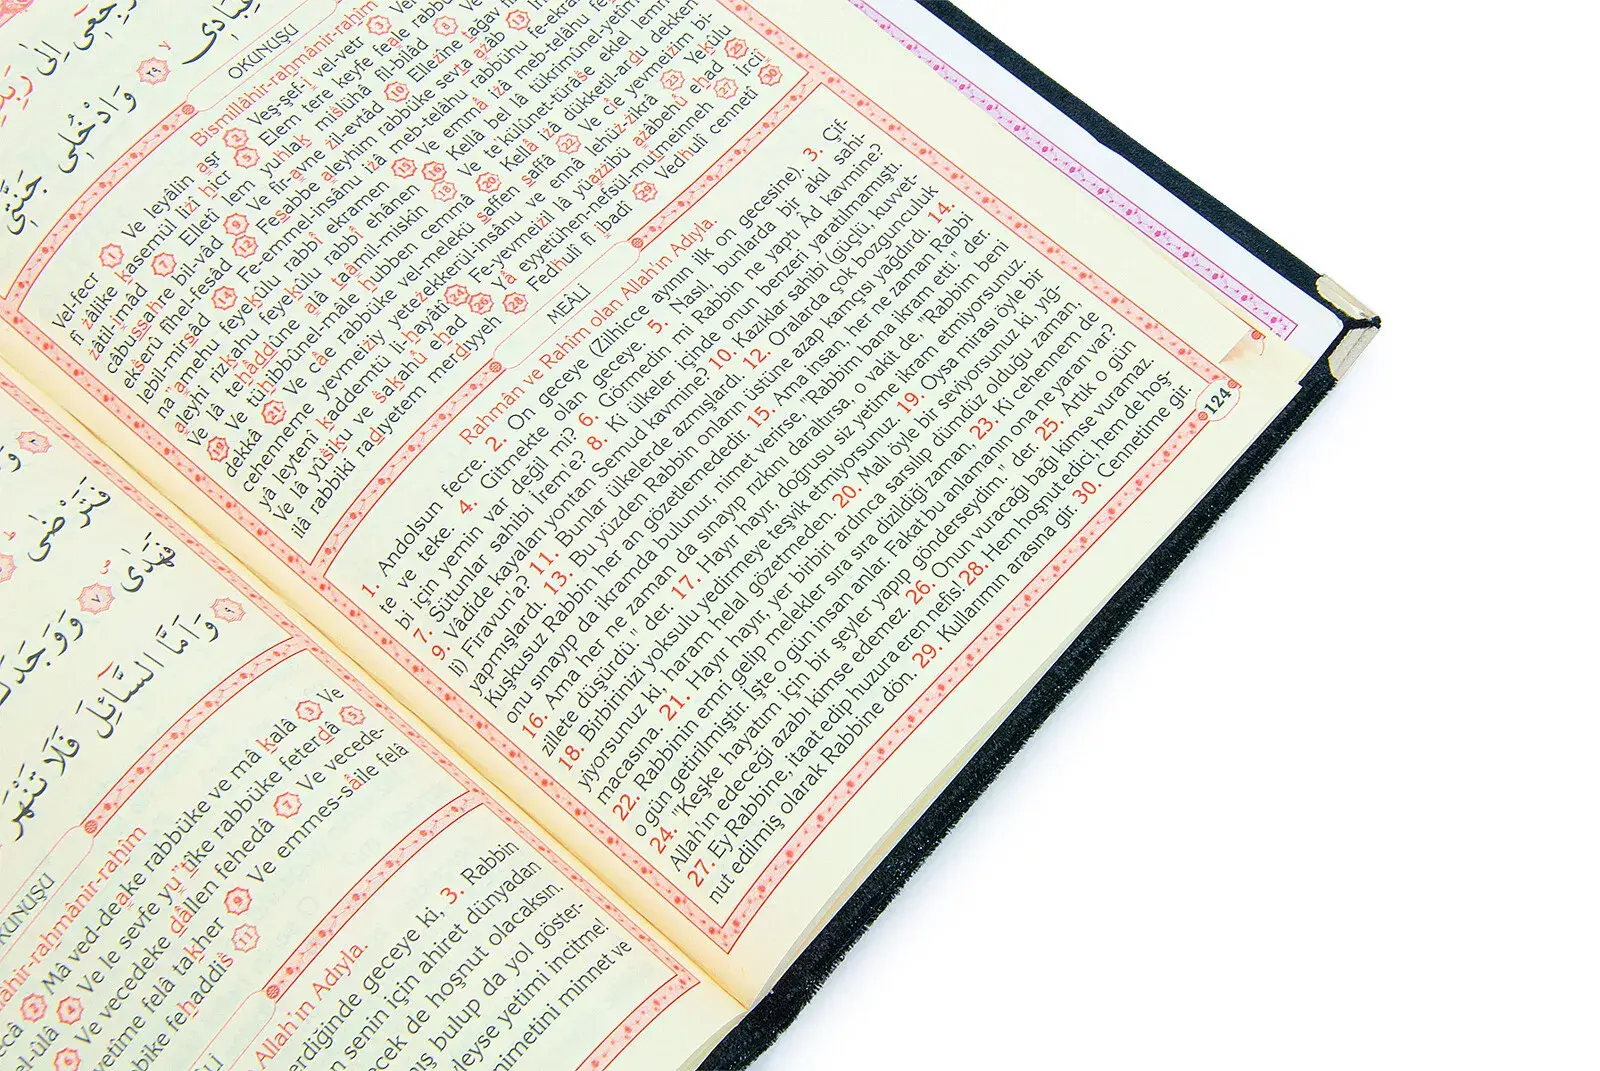 رَبِّكِ
ارْجِعِى اِلٰى
عِبَادِى
وَادْخُلِى جَنَّتِى
OKUNUŞU
Bismillâhir-rahmânir-rahîm
Vel-fecr 1 Ve leyâlin aşr 2 Veş-şef-i vel-vetr 3
fî zâlike kasemül lizî hicr 5 Elem tere keyfe feale
zâtil-imâd 7 Elletî lem yuhlak mislühâ fil-bilâd 8
câbussahre bil-vâd 9 Ve fir-avne zil-evtâd 10 Ellezîne tağav
ekserû fîhel-fesâd 12 Fesabbe aleyhim rabbüke sevta azâb 13
lebil-mirsâd 14 Fe-emmel-insânu izâ meb-telâhu rabbühu
na'amehu feyekûlu rabbî ekramen 15 Ve emmâ izâ meb-telâhu
aleyhi rizkahu feyekûlu rabbî ehânen 16 Kellâ bel lâ tükrimûnel-yetîm
Ve lâ tehâddûne alâ taâmil-miskîn 18 Ve te'külûnet-türâse eklel
19 Ve tühibbûnel-mâle hubben cemmâ 20 Kellâ izâ dükketil-ardu dekken
dekkâ 21 Ve câe rabbüke vel-melekü saffen saffâ 22 Ve cîe yevmeizim bi-
cehenneme yevmeiziy yetezekkerül-insânu ve ennâ lehüz-zikrâ 23 Yekûlu
yâ leytenî kaddemtü li-hayâtî 24 Fe-yevmeizil lâ yüazzibü azâbehû ehad 25
Ve lâ yûsiku ve sakahû ehad 26 Yâ eyyetühen-nefsül-mutmeinneh 27 İrciî
ilâ rabbiki radıyetem merdıyyeh 28 Fedhulî fî ibadî 29 Vedhulî cennetî 30
MEALİ
Rahmân ve Rahîm olan Allah'ın Adıyla.
1. Andolsun fecre. 2. On geceye (Zilhicce ayının ilk on gecesine). 3. Çif-
te ve teke. 4. Gitmekte olan geceye. 5. Nasıl, bunlarda bir akıl sahi-
bi için yemin var değil mi? 6. Görmedin mi Rabbin ne yaptı Âd kavmine?
7. Sütunlar sahibi İrem'e? 8. Ki ülkeler içinde onun benzeri yaratılmamıştı.
9. Vâdide kayaları yontan Semud kavmine? 10. Kazıklar sahibi (güçlü, kuvvet-
li) Firavun'a? 11. Bunlar ülkelerde azmışlardı. 12. Oralarda çok bozgunculuk
yapmışlardı. 13. Bu yüzden Rabbin onların üstüne azap kamçısı yağdırdı. 14.
Kuşkusuz Rabbin her an gözetlemededir. 15. Ama insan, her ne zaman Rabbi
onu sınayıp da ikramda bulunur, nimet verirse, "Rabbim bana ikram etti." der.
16. Ama her ne zaman da sınayıp rızkını daraltırsa, o vakit de, "Rabbim beni
zillete düşürdü." der. 17. Hayır hayır, doğrusu siz yetime ikram etmiyorsunuz.
18. Birbirinizi yoksulu yedirmeye teşvik etmiyorsunuz. 19. Oysa mirası öyle bir
yiyorsunuz ki, haram helal gözetmeden. 20. Malı öyle bir seviyorsunuz ki, yığ-
macasına. 21. Hayır hayır, yer birbiri ardınca sarsılıp dümdüz olduğu zaman,
22. Rabbinin emri gelip melekler sıra sıra dizildiği zaman. 23. Ki cehennem de
o gün getirilmiştir. İşte o gün insan anlar. Fakat bu anlamanın ona ne yararı var?
24. "Keşke hayatım için bir şeyler yapıp gönderseydim." der. 25. Artık o gün
Allah'ın edeceği azabı kimse edemez. 26. Onun vuracağı bağı kimse vuramaz.
27. Ey Rabbine, itaat edip huzura eren nefis! 28. Hem hoşnut edici, hem de hoş-
nut edilmiş olarak Rabbine dön. 29. Kullarımın arasına gir. 30. Cennetime gir.
124
فَتَرْضٰى
وَوَجَدَكَ
فَهَدٰى
وَاَمَّا السَّٓائِلَ فَلَا تَنْهَرْ
rahmânir-rahîm
2 Mâ ved-deake rabbüke ve mâ kalâ 3 Ve
4 Ve le sevfe yu'tîke rabbüke feterdâ 5
6 Ve vecedeke dâllen fehedâ 7 Ve vecede-
yetîme felâ takher 9 Ve emmes-sâile felâ
fehaddis 11
Allah'ın Adıyla.
geceye ki, 3. Rabbin
senin için ahiret dünyadan
de hoşnut olacaksın.
bulup da yol göster-
yetimi incitme!
minnet ve